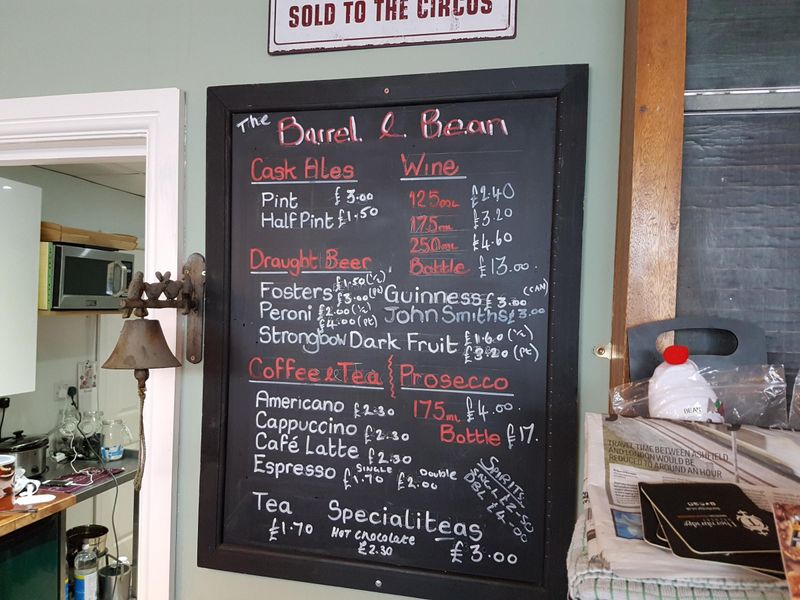 SOLD TO THE CIRCUS
The Barrel & Bean
Cask Ales
Pint £3.00
Half Pint £1.50
Wine
125ML £2.40
175ML £3.20
250ML £4.60
Bottle £13.00.
Draught Beer
Fosters £1.50 (½) £3.00 (pt)
Guinness £3.00 (CAN)
Peroni £2.00 (½) £4.00 (pt)
John Smiths £3.00
Strongbow Dark Fruit £1.60 (½) £3.20 (pt)
Coffee & Tea
Americano £2.30
Cappuccino £2.30
Café Latte £2.30
Espresso SINGLE £1.70 Double £2.00
Prosecco
175ML £4.00.
Bottle £17.
Spirits
DBL £4.00
Tea £1.70
Hot chocolate £2.30
Specialiteas £3.00
BEAN
TRAVEL TIME BETWEEN ASHFIELD
AND LONDON WOULD BE
REDUCED TO AROUND AN HOUR